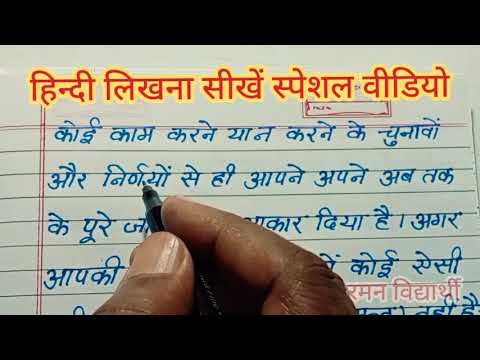 हिन्दी लिखना सीखें स्पेशल वीडियो
कोई काम करने या न करने के चुनावों
और निर्णयों से ही आपने अपने अब तक
के पूरे आकार दिया है। अगर
आपकी कोई ऐसी
रमन विद्यार्थी